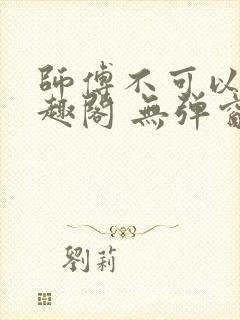 師傅不可以
趣閣 無彈
劉莉